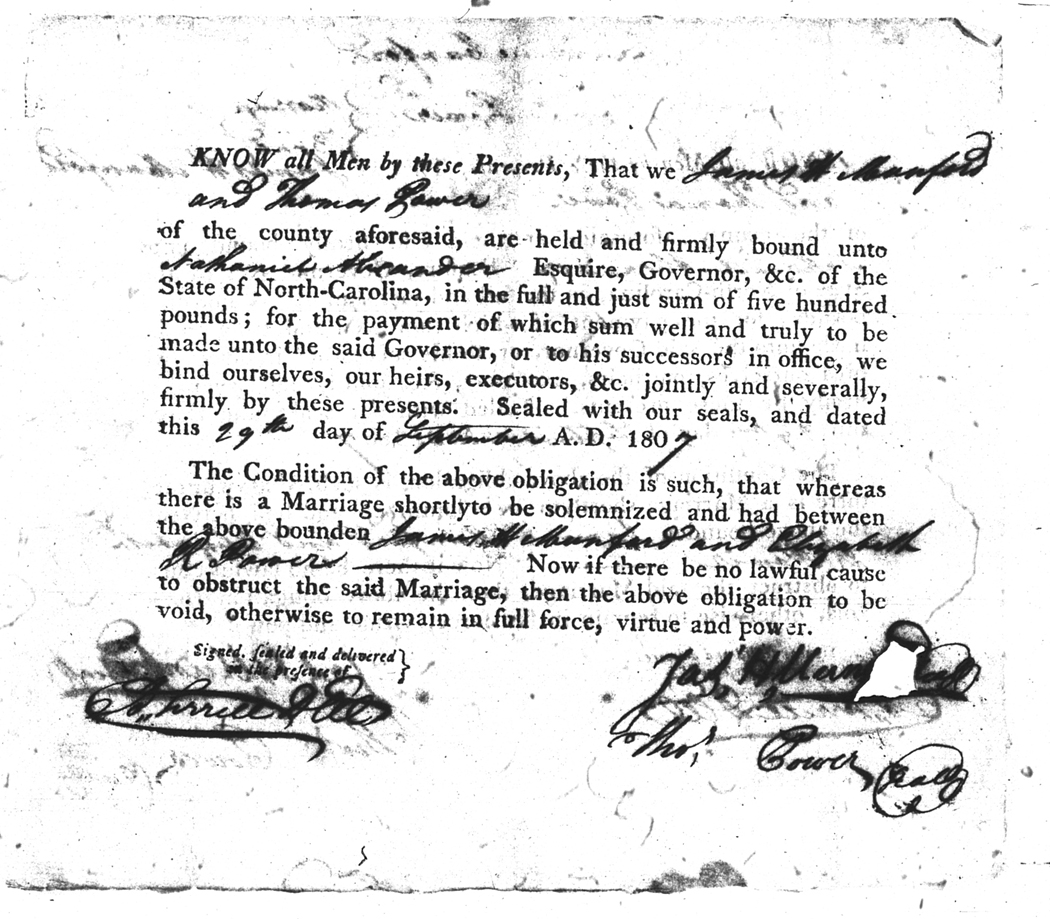 KNOW all Men by these Presents, That we James H Munford
and Thomas Power
of the county aforesaid, are held and firmly bound unto
Nathaniel Alexander Esquire, Governor, &c. of the
State of North-Carolina, in the full and just sum of five hundred
pounds; for the payment of which sum well and truly to be
made unto the said Governor, or to his successors in office, we
bind ourselves, our heirs, executors, &c. jointly and severally,
firmly by these presents. Sealed with our seals, and dated
this 29th day of September A. D. 1807
The Condition of the above obligation is such, that whereas
there is a Marriage shortly to be solemnized and had between
the above bounden James H Munford and Elizabeth
R Power Now if there be no lawful cause
to obstruct the said Marriage, then the above obligation to be
void, otherwise to remain in full force, virtue and power.
Signed, sealed and delivered
in the presence of
Jas. H
Thos. Power (seal)